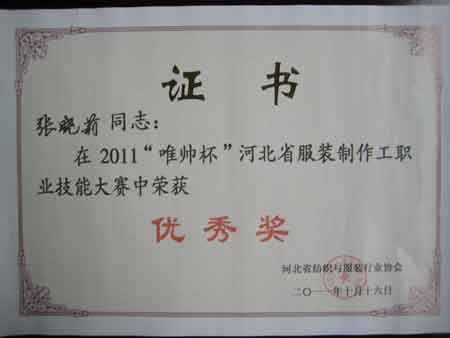 证书
张晓莉 同志：
在 2011“唯帅杯”河北省服装制作工职
业技能大赛中荣获
优秀奖
河北省纺织与服装行业协会
二〇一一年十月十六日